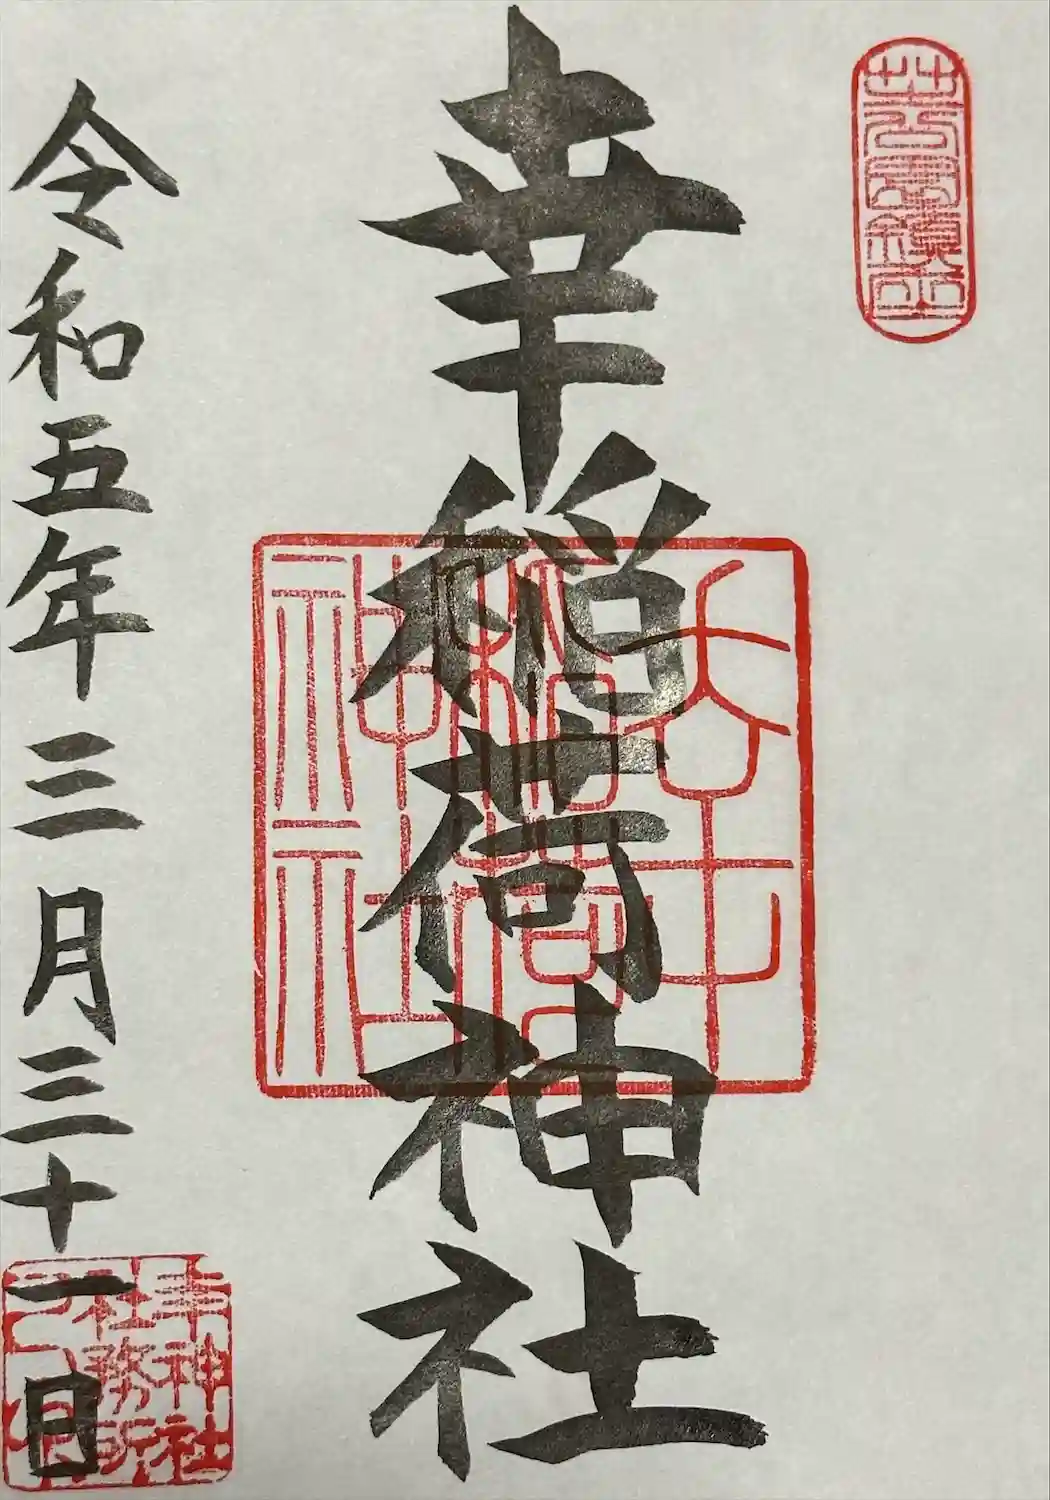 芝公園鎮座
幸稲荷神社
幸稲荷神社
令和五年三月三十一日
幸神社
社務所